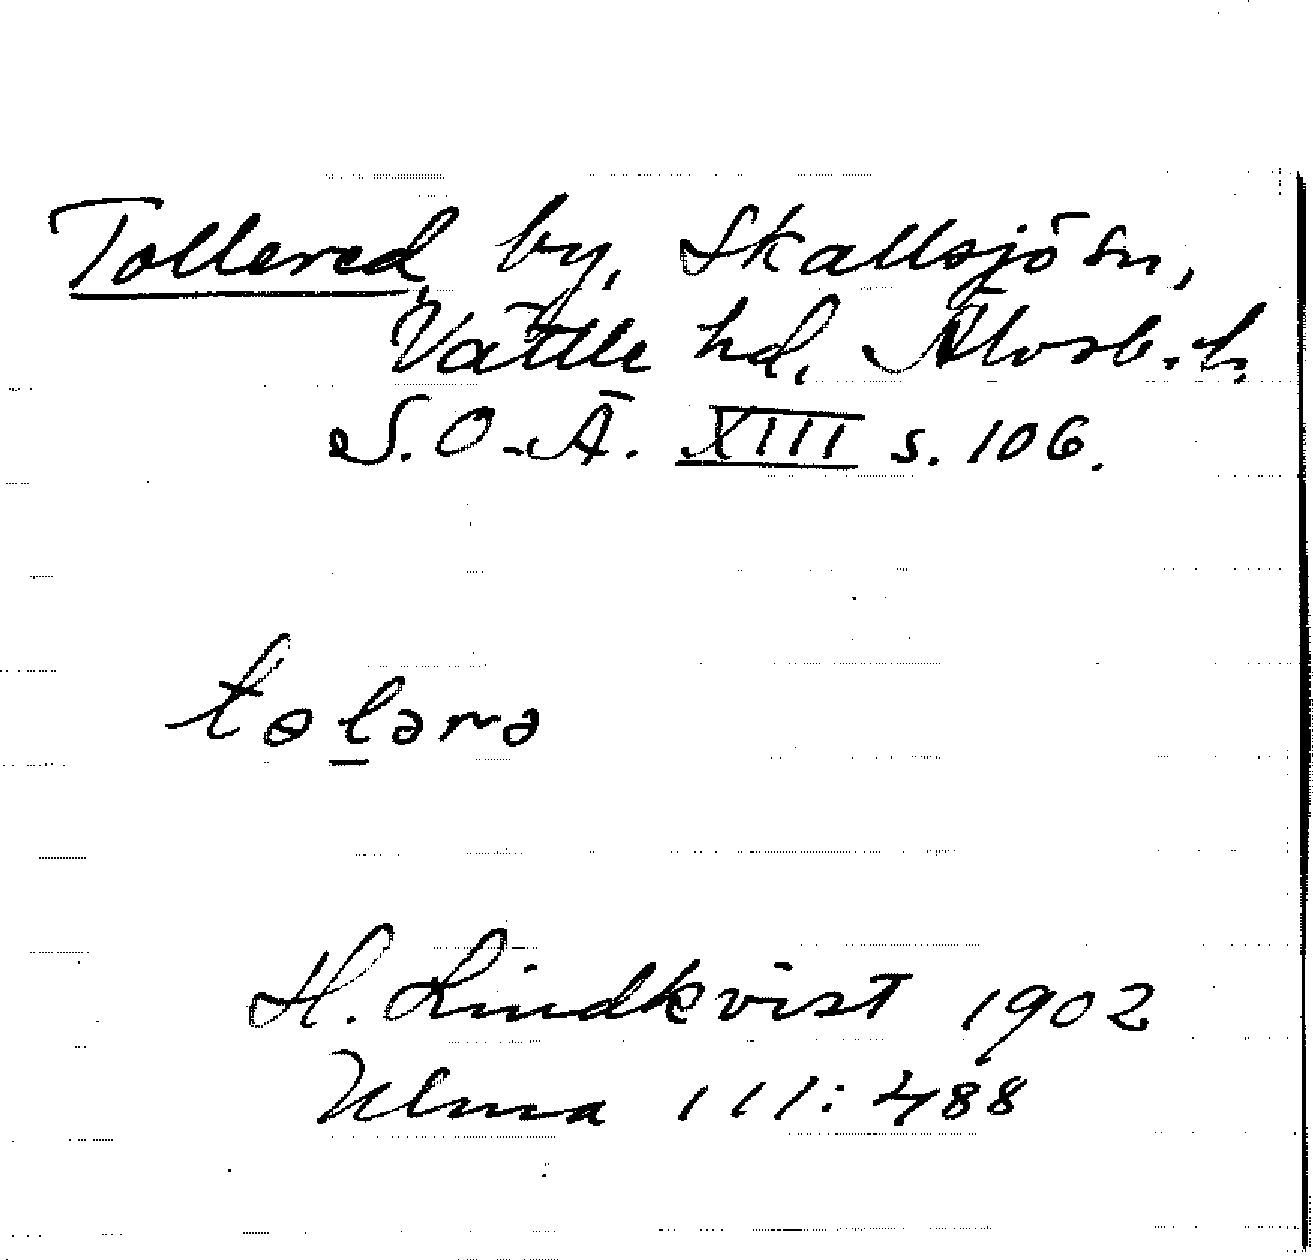 Tollered, by, Skallsjö sn,
Vättle hd, Älvsb. l.
S.O.Ä. XIII s. 106.
tɵlərə
H. Lindkvist 1902
Ulma 111:488